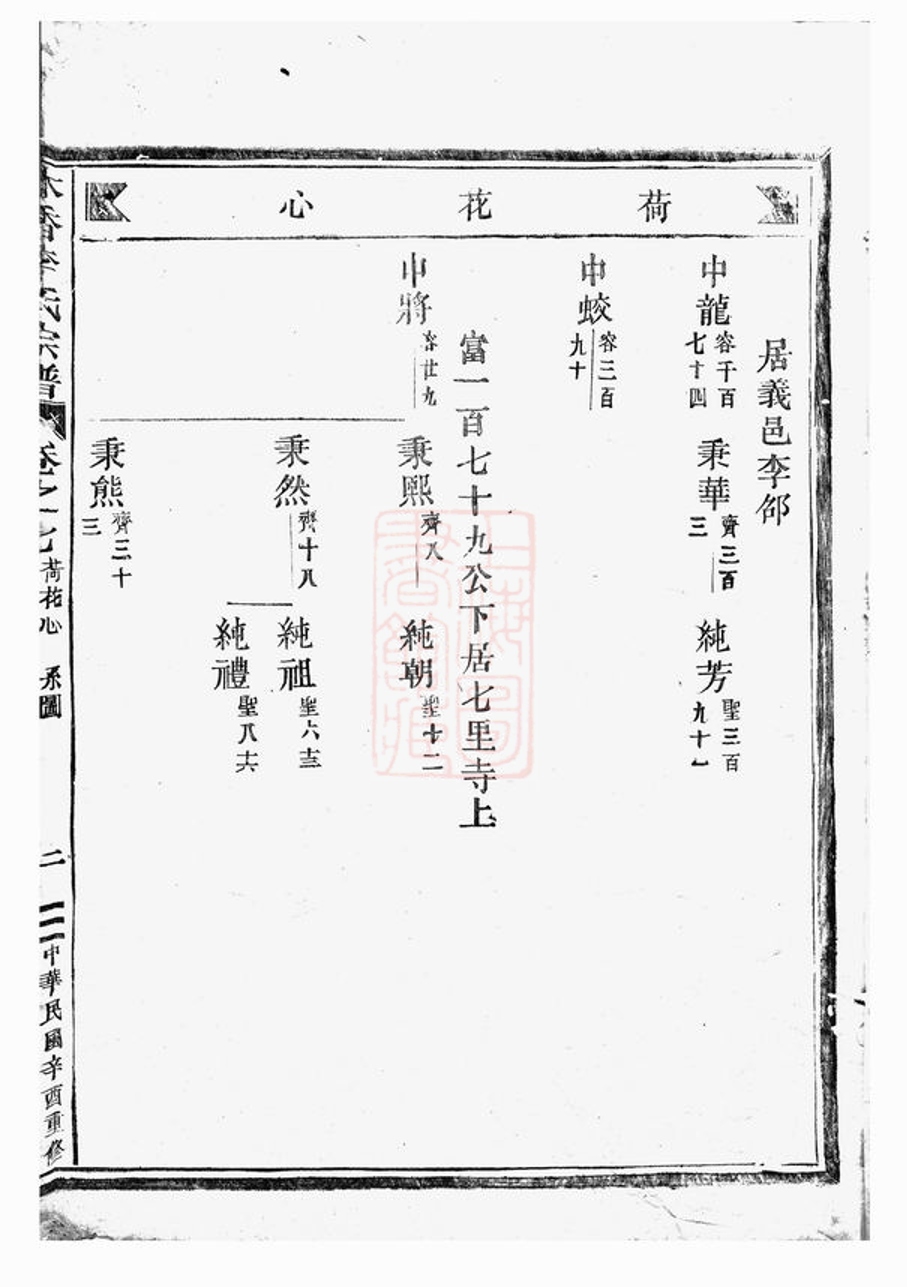 荷花心
居義邑李邨
中龍 容千百七十四
秉華 齊三百三
純芳 聖三百九十一
中蛟 容三百九十
富一百七十九公下居七里寺上
中將 容廿九
秉熙 齊八
純朝 聖十二
秉然 齊十八
純祖 聖六十三
純禮 聖八十六
秉熊 齊三十三
香李氏宗譜 卷之十七 荷花心 系圖 二 中華民國辛酉重修
上海圖書館藏